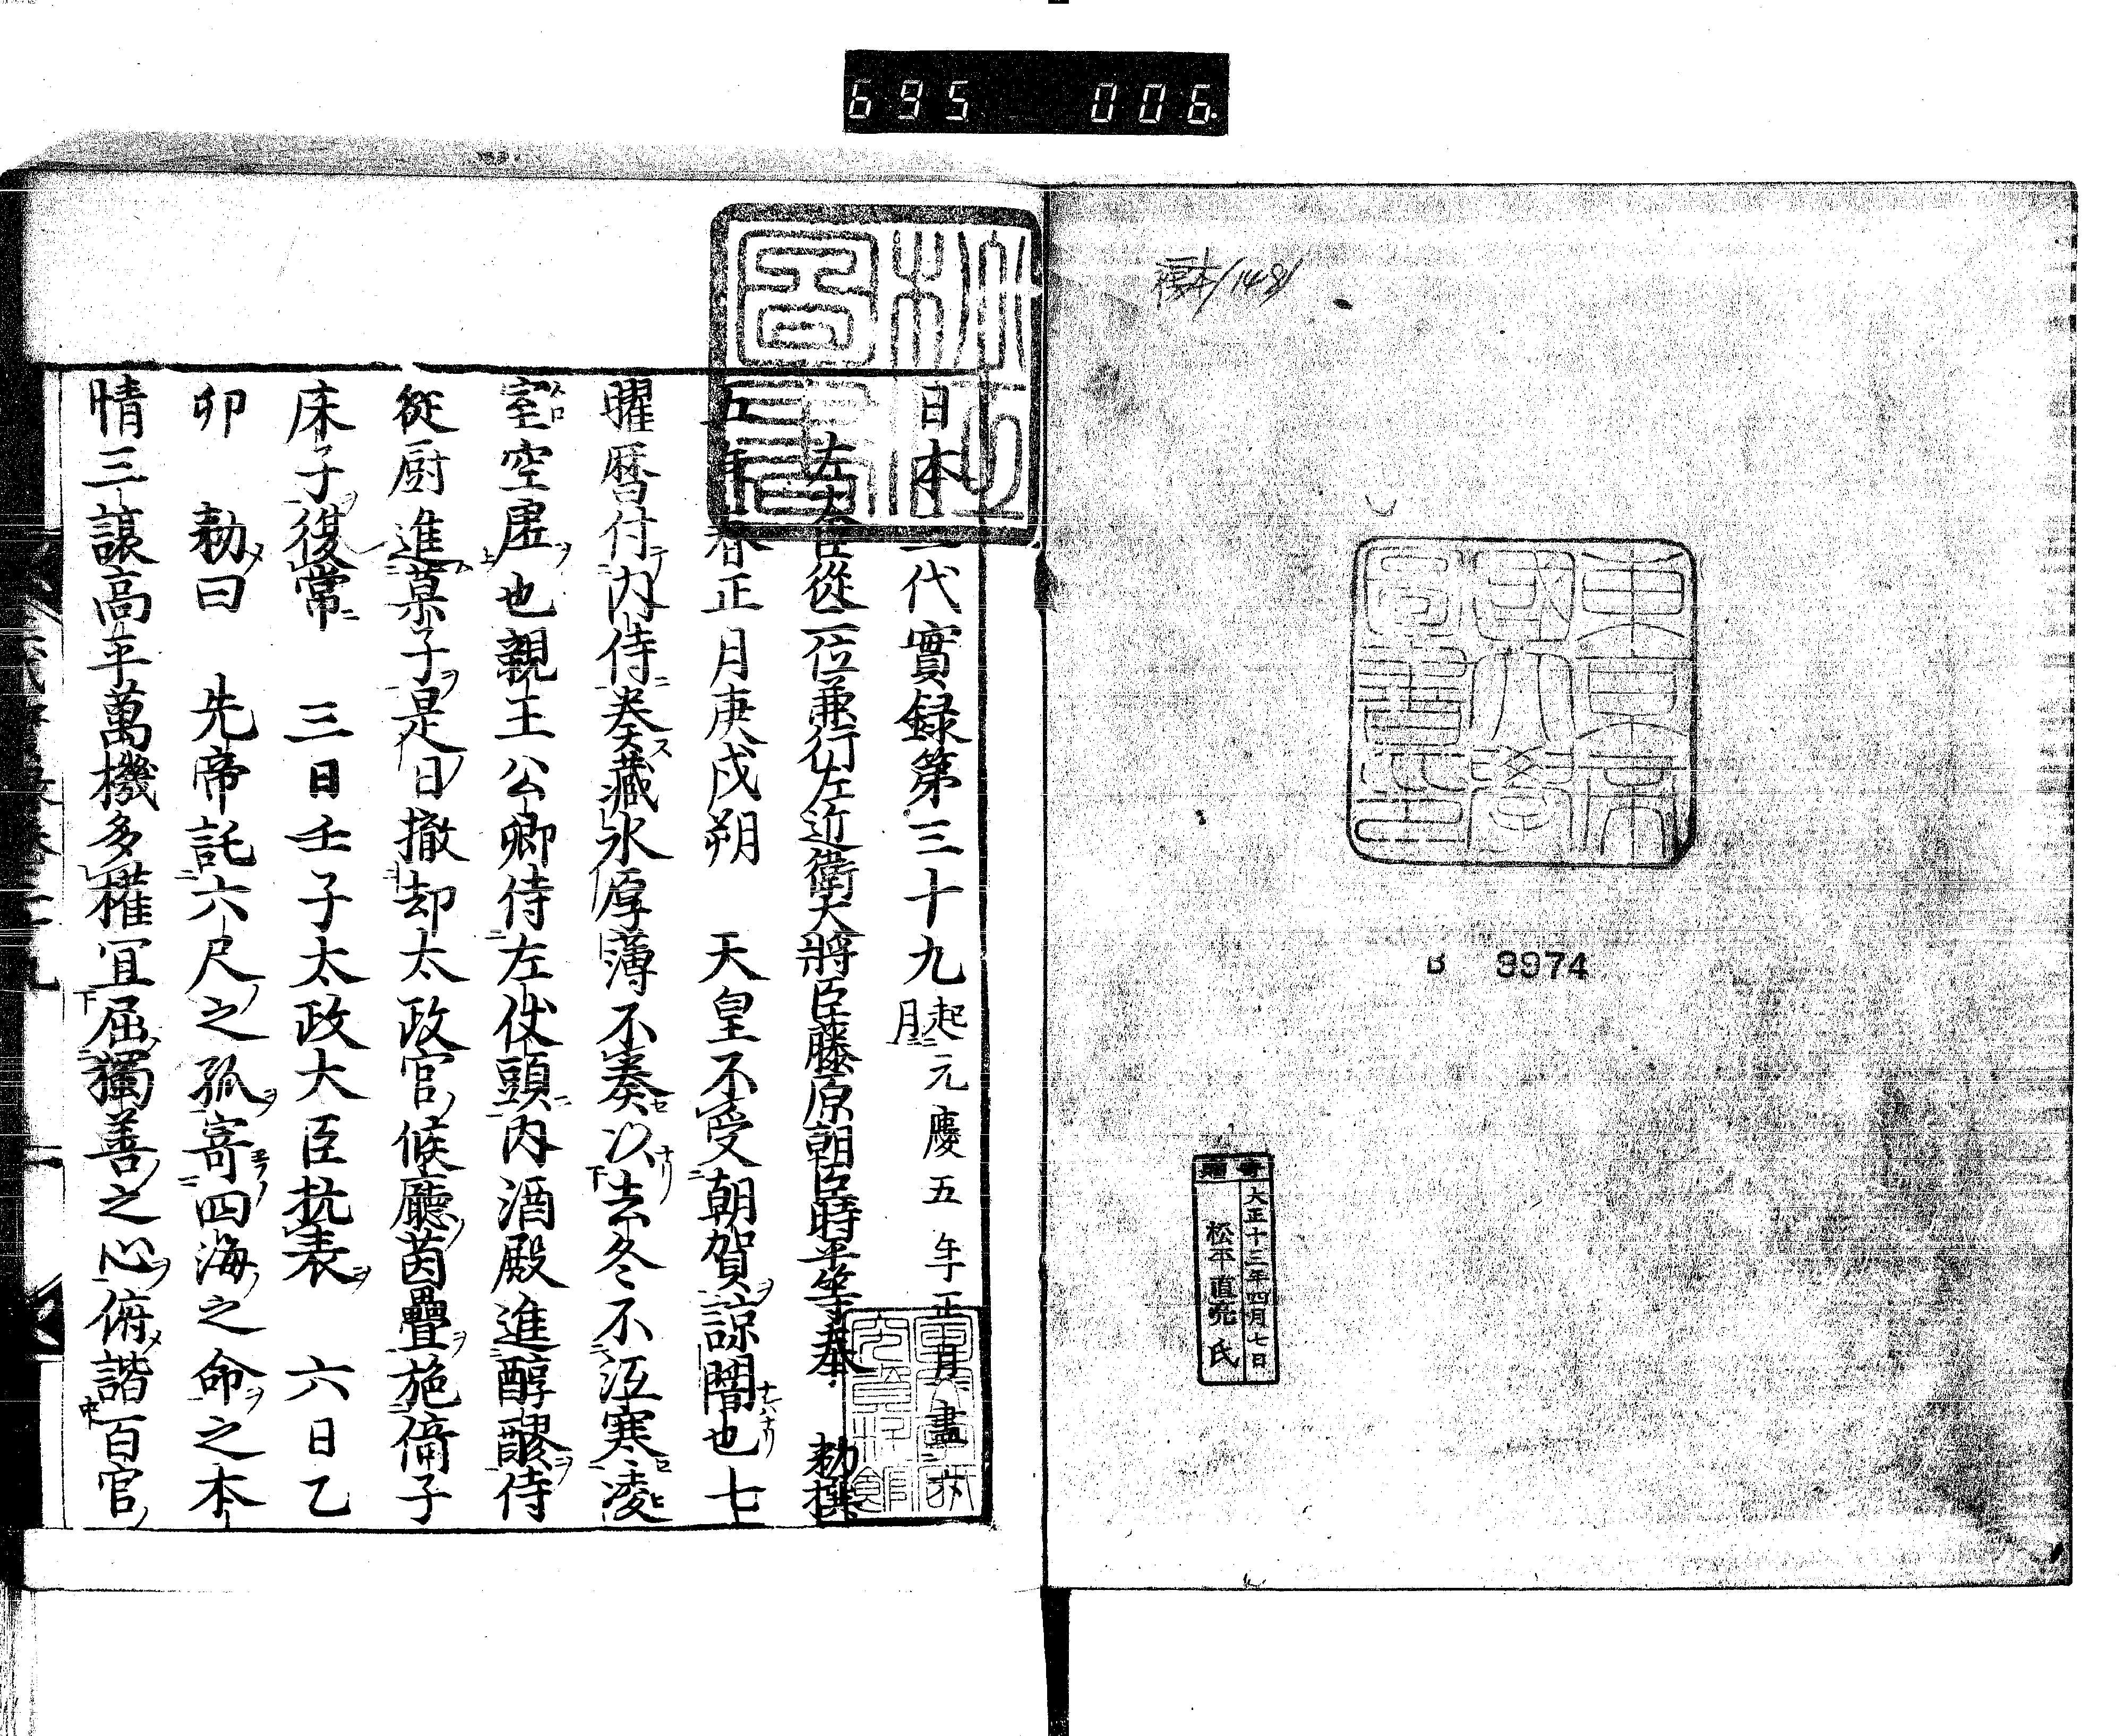 695 006
標本/1481
東京帝
國大學
圖書印
B 3974
寄贈
大正十三年四月七日
松平直亮氏
日本三代實録第三十九 起元慶五年正月盡六月
左大臣從二位兼行左近衛大將臣藤原朝臣時平等奉 勅撰
五年春正月庚戌朔 天皇不受朝賀諒闇也七
曜曆付内侍奏藏氷厚薄不奏以去冬不沍寒凌
室空虚也親王公卿侍左仗頭内酒殿進醇醪侍
從厨進菓子是日撤却太政官候廳茵疊施偹子
床子復常 三日壬子太政大臣抗表 六日乙
卯 勅曰 先帝託六尺之孤寄四海之命之本
情三讓高平萬機多權冝屈獨善之心俯諧百官